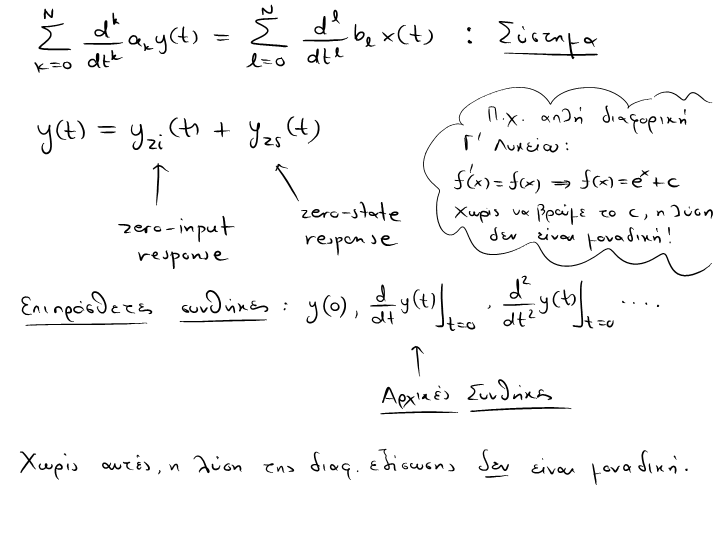 \sum_{k=0}^{N} \frac{d^k}{dt^k} a_k y(t) = \sum_{l=0}^{N} \frac{d^l}{dt^l} b_l x(t) : Σύστημα
y(t) = y_{zi}(t) + y_{zs}(t)
zero-input
response
zero-state
response
Π.χ. απλή διαφορική
Γ' Λυκείου:
f'(x) = f(x) ⇒ f(x) = e^x + c
Χωρίς να βρούμε το c, η λύση
δεν είναι μοναδική!
Επιπρόσθετες συνθήκες : y(0), \frac{d}{dt} y(t)|_{t=0}, \frac{d^2}{dt^2} y(t)|_{t=0} ....
Αρχικές Συνθήκες
Χωρίς αυτές, η λύση της διαφ. εξίσωσης δεν είναι μοναδική.